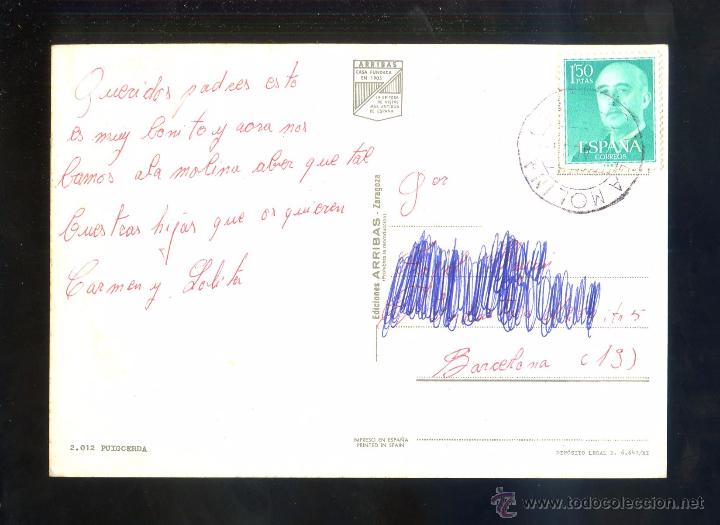 Queridos padres esto
es muy bonito y aora nos
bamos a la molina aber que tal
buestras hijas que os quieren
Carmen y Lolita
ARRIBAS
CASA FUNDADA
EN 1905
LA EDITORA
DE VISTAS
MAS ANTIGUA
DE ESPAÑA
1'50
PTAS
ESPAÑA
CORREOS
LA MOLINA
Ediciones ARRIBAS - Zaragoza
(Prohibida la reproducción)
Barcelona (19)
2.012 PUIGCERDA
IMPRESO EN ESPAÑA
PRINTED IN SPAIN
DEPÓSITO LEGAL Z.
todocoleccion
www.todocoleccion.net